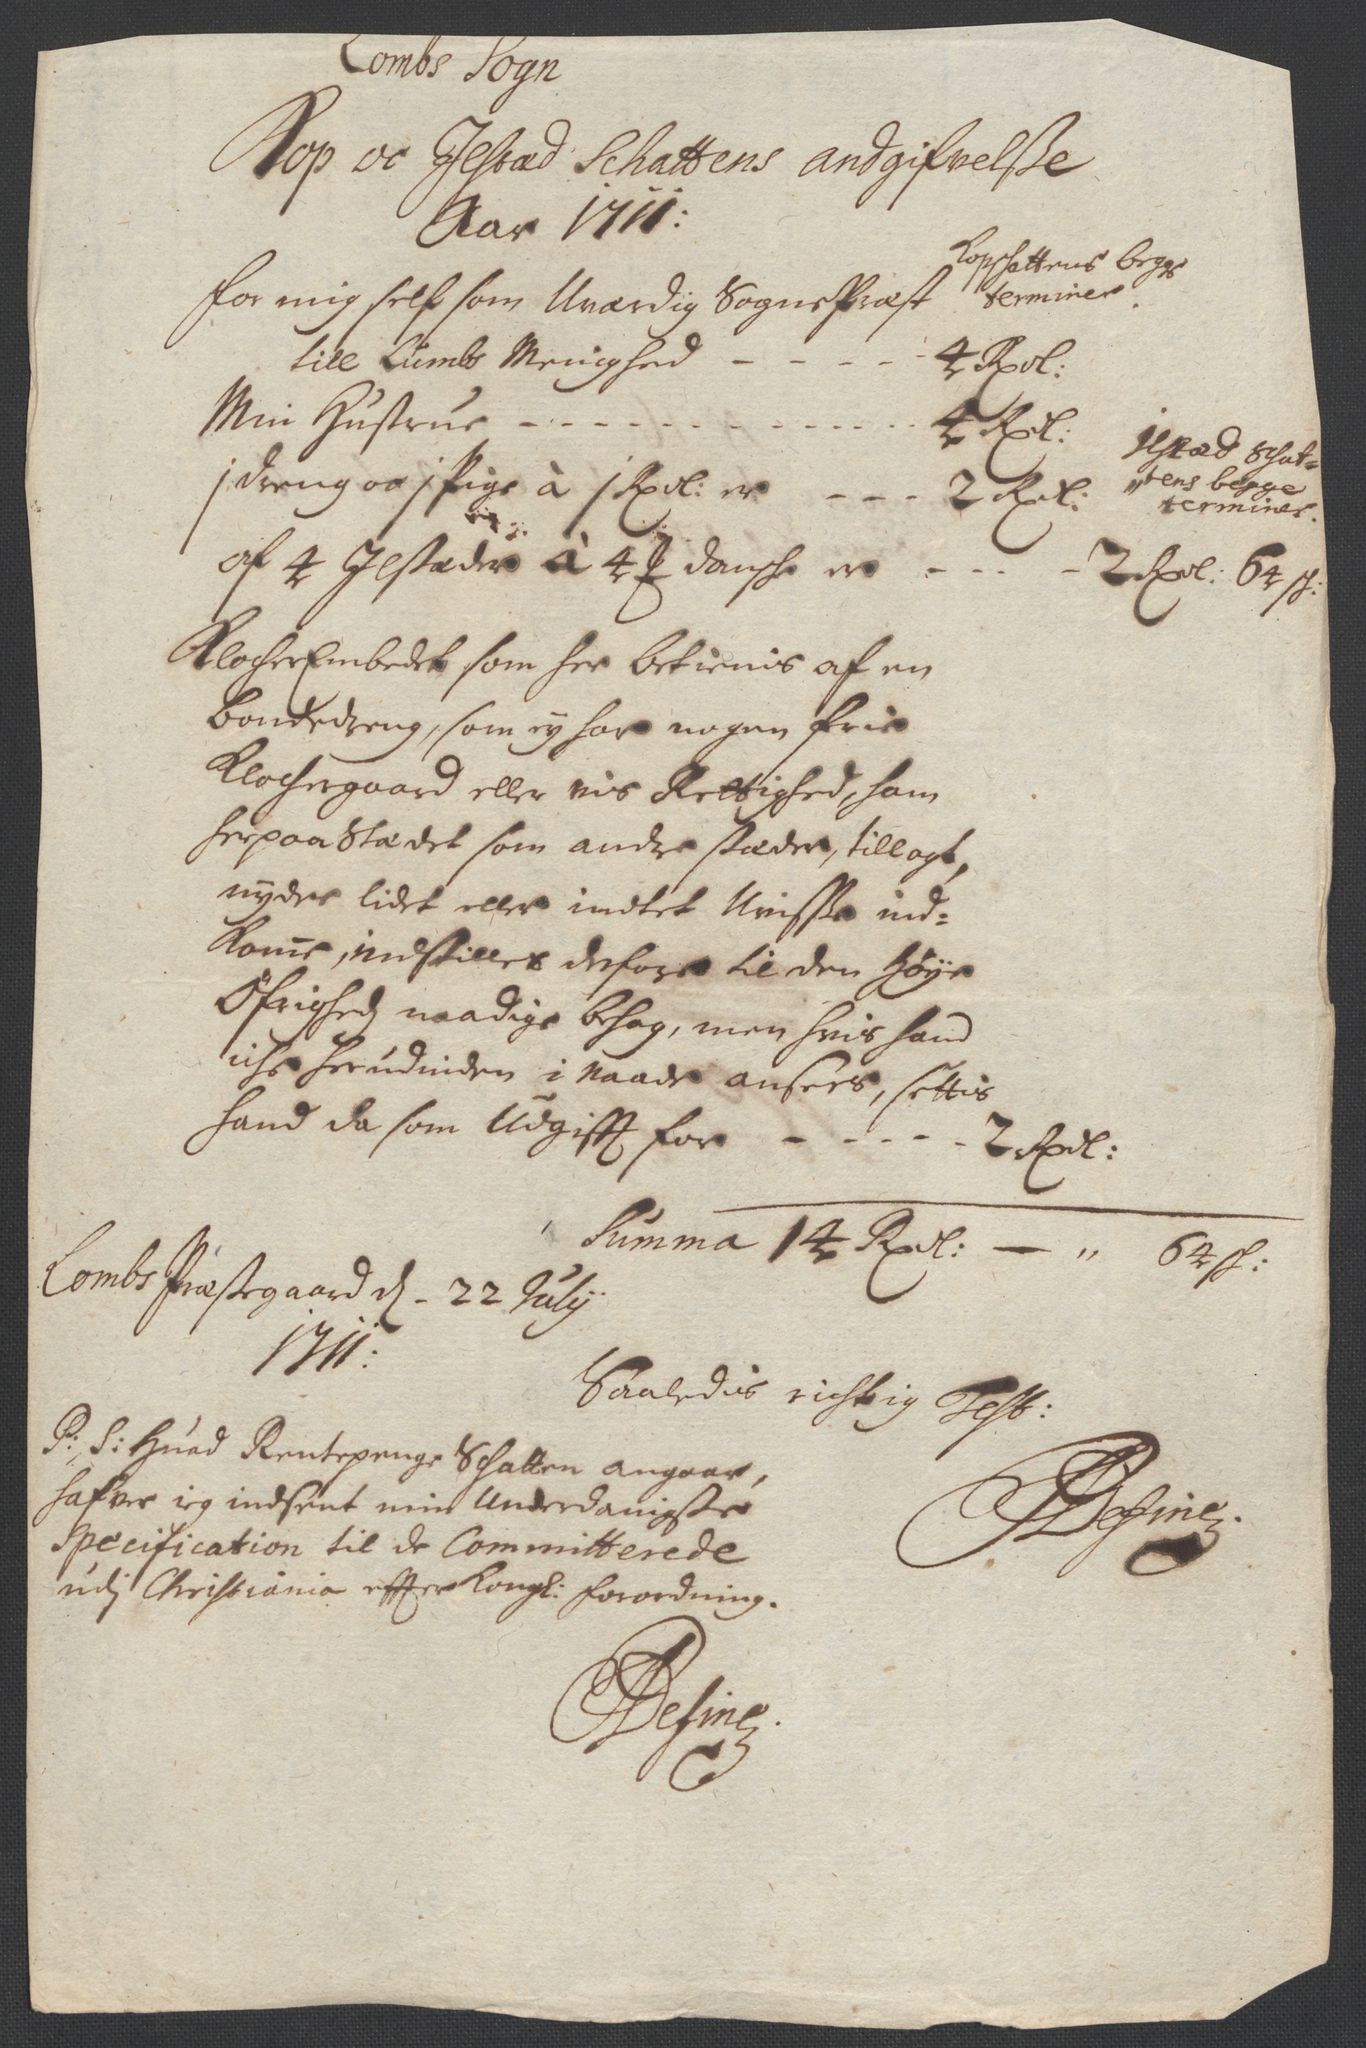 Lombs Sogn
Kop oc Ilstæd Schattens andgifvelsse
Aar 1711:
Kopschattens begge
terminer.
for mig self som Uværdig SognePræst
till Lumbs Menighed - - - - - 4 Rxdl:
Min Hustrue - - - - - - - - - - - - 4 Rxdl:
1 dreng oc 1 Pige à 1 Rxdl: er - - - 2 Rxdl:
Ilstæd Schat-
tens begge
terminer.
af 4 Ilstæder à 4 ꝶ dansche er - - - - 2 Rxdl: 64 sh:
KlocherEmbedet som her betienis af en
bondedreng, som ey har nogen frie
Klochergaard eller vis Rettighed, ham
herpaa Stædet som andre stæder, tillagt,
nyder lidet eller indtet Uvisse ind-
komme, indstilles derfore til den Høye
Øfrigheds naadige behag, men hvis hand
iche herudinden i naade ansees, settis
hand da som Udgifft for - - - - - 2 Rxdl:
Summa 14 Rxdl: — „ 64 sh:
Lombs Præstegaard d. 22 July
1711:
Saaledis richtig Test:
P: S: Huad Rentepenge Schatten angaar,
hafver ieg indsent min Underdanigste
Specification til de Committerede
udj Christiania effter Kongl: forordning.
Desine
Desine